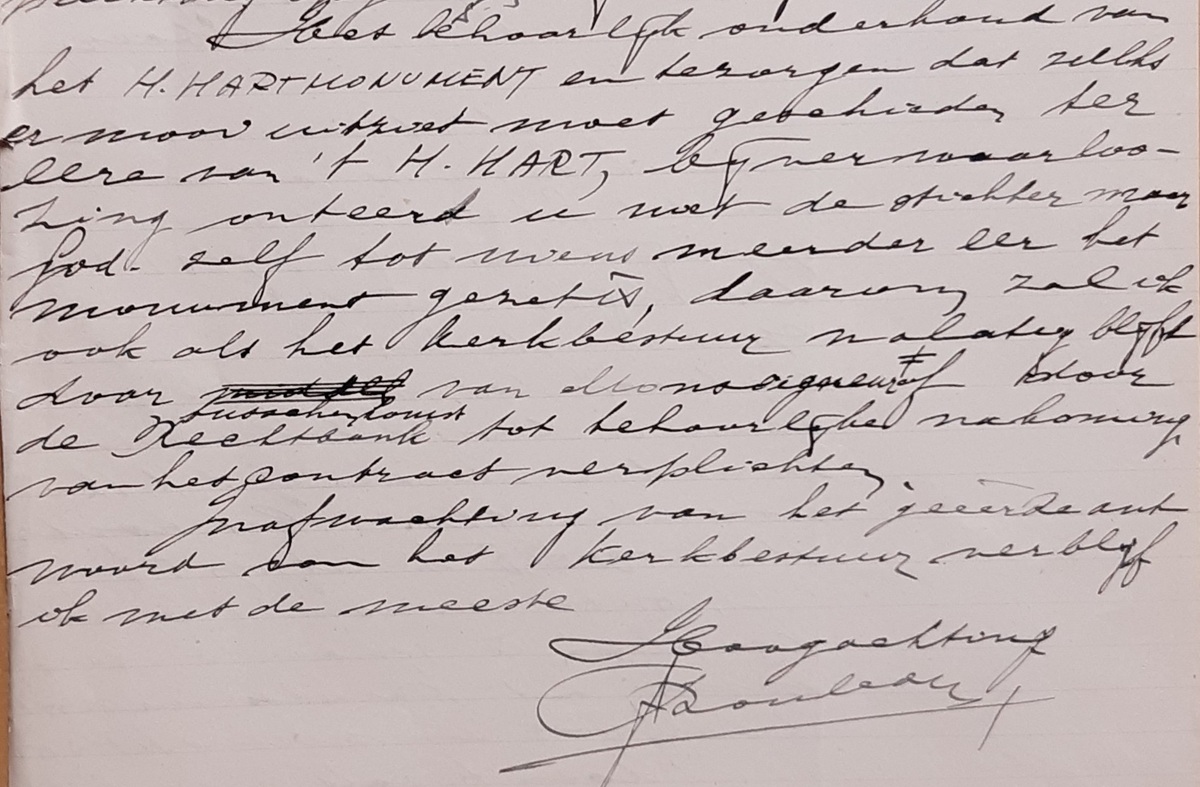 Het behoorlijk onderhoud van
het H. HARTMONUMENT en bezorgen dat zulks
er mooi uitziet moet geschieden ter
eere van 't H. HART, bij verwaarloo-
zing onteerd u niet de stichter maar
God. zelf tot wiens meerder eer het
monument gezet is, daarom zal ik
ook als het kerkbestuur nalatig blijft
door tusschenkomst van Monseigneur of door
de Rechtbank tot behoorlijke nakoming
van het contract verplichten
In afwachting van het geëerde ant
woord van het kerkbestuur verblijf
ik met de meeste
Hoogachting